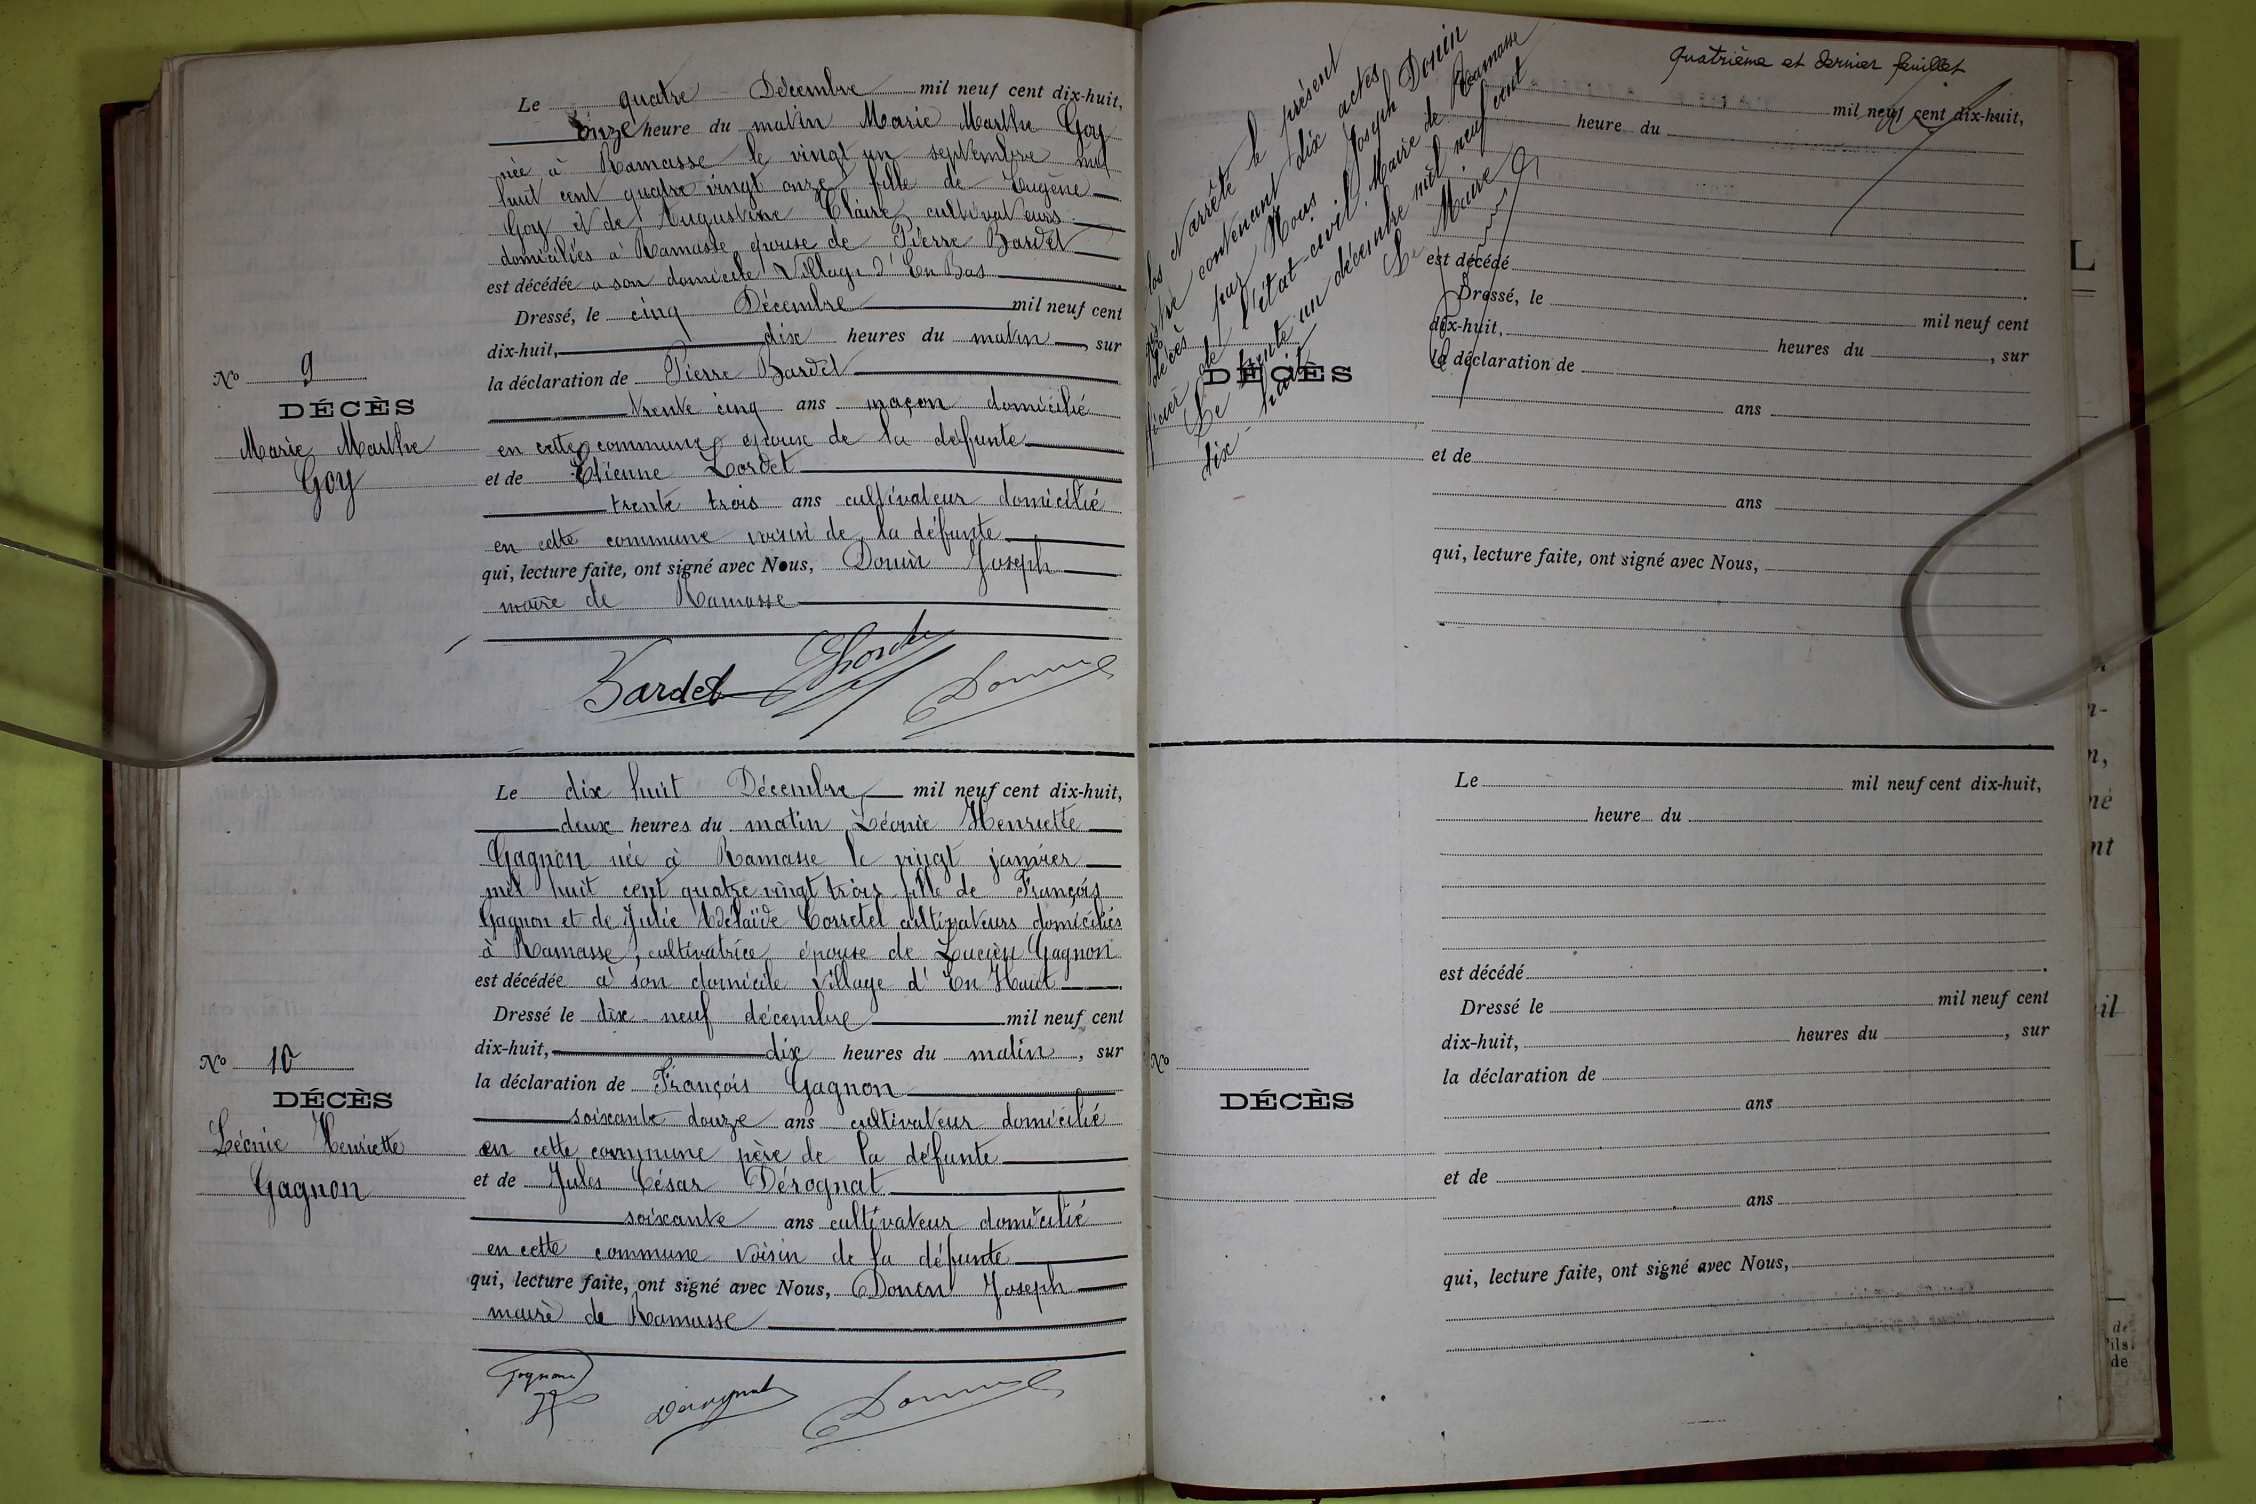 Le quatre Décembre mil neuf cent dix-huit,
onze heure du matin Marie Marthe Goy
née à Ramasse le vingt un septembre mil
huit cent quatre vingt onze fille de Eugène
Goy et de Augustine Claire, cultivateurs
domiciliés à Ramasse épouse de Pierre Bardet
est décédée a son domicile Village d'En Bas
Dressé, le cinq Décembre mil neuf cent
dix-huit, dix heures du matin, sur
la déclaration de Pierre Bardet
trente cinq ans maçon domicilié
en cette commune époux de la défunte
et de Etienne Lordet
trente trois ans cultivateur domicilié
en cette commune voisin de la défunte
qui, lecture faite, ont signé avec Nous, Donin Joseph
maire de Ramasse
Bardet Donin
No 9
DÉCÈS
Marie Marthe
Goy
Le dix huit Décembre mil neuf cent dix-huit,
deux heures du matin Léonie Henriette
Gagnon née à Ramasse le vingt janvier
mil huit cent quatre vingt trois fille de François
Gagnon et de Julie Adélaïde Corretel cultivateurs domiciliés
à Ramasse, cultivatrice, épouse de Lucien Gagnon
est décédée à son domicile village d'En Haut
Dressé le dix neuf décembre mil neuf cent
dix-huit, dix heures du matin, sur
la déclaration de François Gagnon
soixante douze ans cultivateur domicilié
en cette commune père de la défunte
et de Jules César Dérognat
soixante ans cultivateur domicilié
en cette commune voisin de la défunte
qui, lecture faite, ont signé avec Nous, Donin Joseph
maire de Ramasse
Gagnon Dérognat Donin
No 10
DÉCÈS
Léonie Henriette
Gagnon
Quatrième et dernier feuillet
los et arrêté le présent
contenant dix actes
décès par Nous Joseph Donin
de l'état-civil, Maire de Ramasse
Le trente un décembre mil neuf cent
dix huit
Le Maire
mil neuf cent dix-huit,
heure du
est décédé
Dressé, le mil neuf cent
dix-huit, heures du , sur
la déclaration de
ans
et de
ans
qui, lecture faite, ont signé avec Nous,
DÉCÈS
Le mil neuf cent dix-huit,
heure du
est décédé
Dressé le mil neuf cent
dix-huit, heures du , sur
la déclaration de
ans
et de
ans
qui, lecture faite, ont signé avec Nous,
No
DÉCÈS